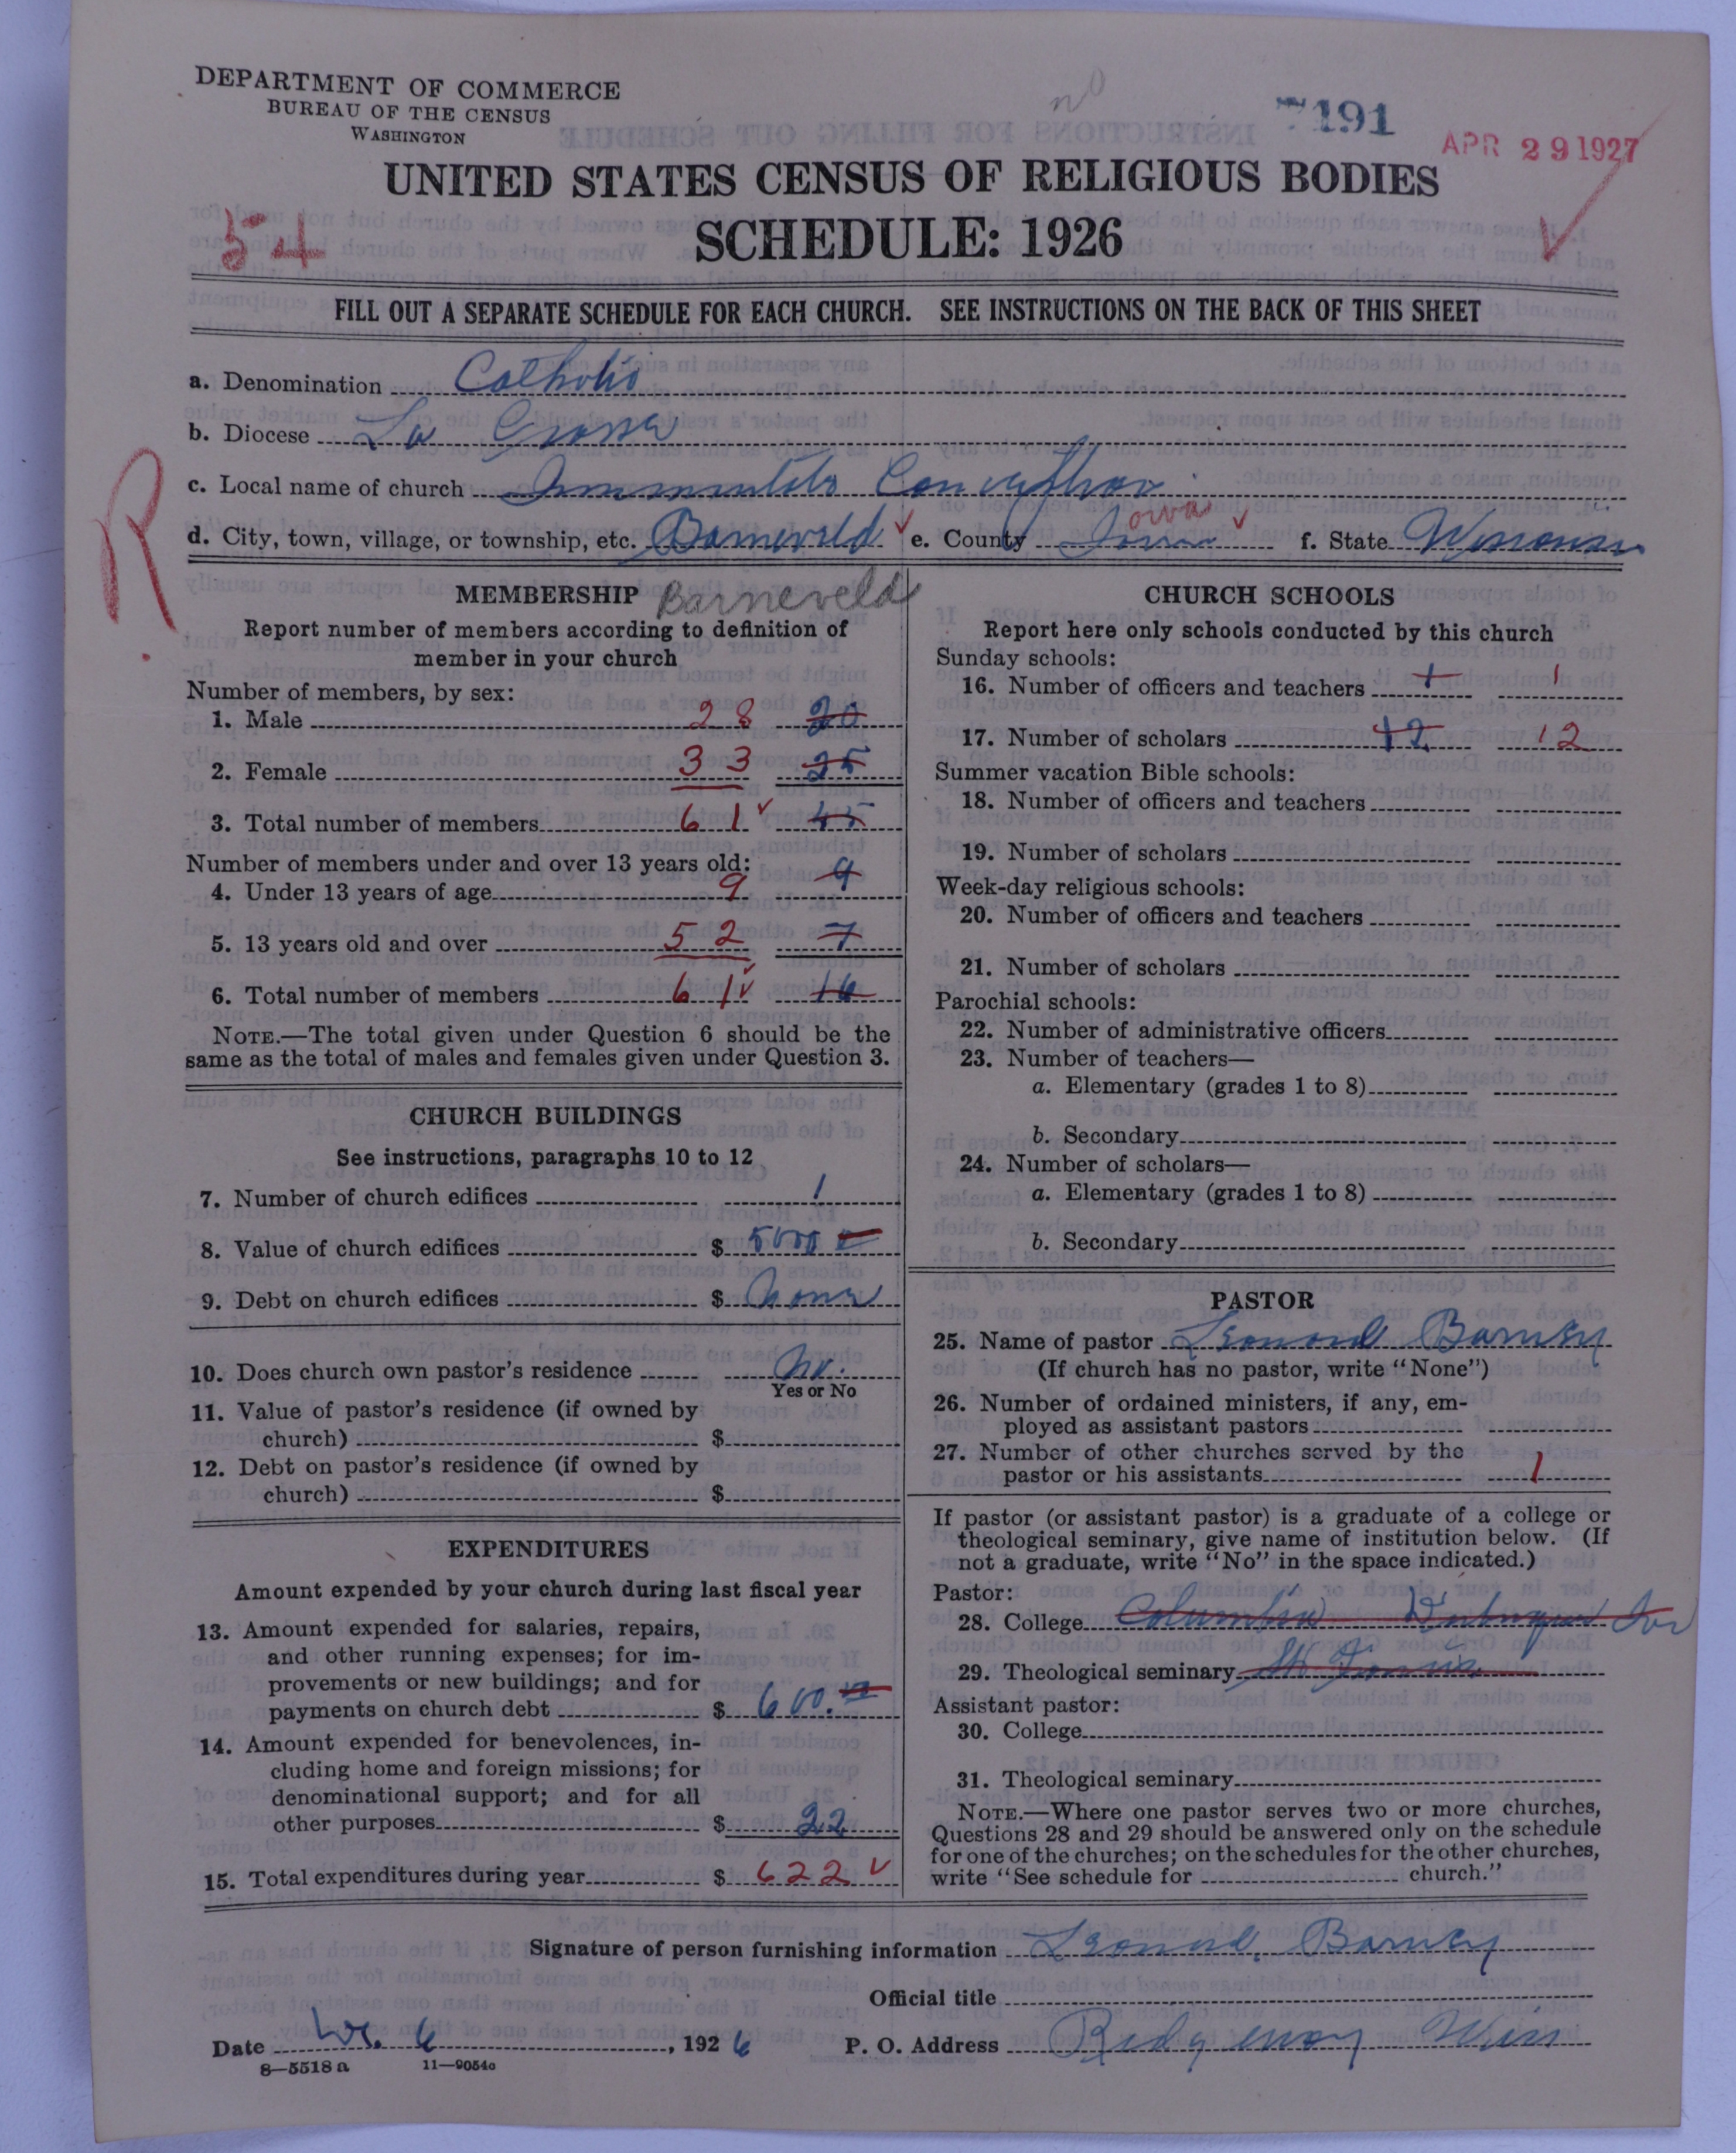 DEPARTMENT OF COMMERCE
BUREAU OF THE CENSUS
WASHINGTON
no
191
APR 29 1927
UNITED STATES CENSUS OF RELIGIOUS BODIES
SCHEDULE: 1926
54
FILL OUT A SEPARATE SCHEDULE FOR EACH CHURCH. SEE INSTRUCTIONS ON THE BACK OF THIS SHEET
a. Denomination Catholic
b. Diocese La Crosse
c. Local name of church Immaculate Conception
d. City, town, village, or township, etc. Barneveld e. County Iowa Iowa f. State Wisconsin
R
MEMBERSHIP Barneveld
Report number of members according to definition of
member in your church
Number of members, by sex:
1. Male 28 20
2. Female 33 25
3. Total number of members 61 45
Number of members under and over 13 years old:
4. Under 13 years of age 9 9
5. 13 years old and over 52 7
6. Total number of members 61 16
NOTE.—The total given under Question 6 should be the
same as the total of males and females given under Question 3.
CHURCH BUILDINGS
See instructions, paragraphs 10 to 12
7. Number of church edifices 1
8. Value of church edifices $ 5000
9. Debt on church edifices $ None
10. Does church own pastor's residence No.
Yes or No
11. Value of pastor's residence (if owned by
church) $
12. Debt on pastor's residence (if owned by
church) $
EXPENDITURES
Amount expended by your church during last fiscal year
13. Amount expended for salaries, repairs,
and other running expenses; for im-
provements or new buildings; and for
payments on church debt $ 600.
14. Amount expended for benevolences, in-
cluding home and foreign missions; for
denominational support; and for all
other purposes $ 22
15. Total expenditures during year $ 622
CHURCH SCHOOLS
Report here only schools conducted by this church
Sunday schools:
16. Number of officers and teachers 1 1
17. Number of scholars 12 12
Summer vacation Bible schools:
18. Number of officers and teachers
19. Number of scholars
Week-day religious schools:
20. Number of officers and teachers
21. Number of scholars
Parochial schools:
22. Number of administrative officers
23. Number of teachers—
a. Elementary (grades 1 to 8)
b. Secondary
24. Number of scholars—
a. Elementary (grades 1 to 8)
b. Secondary
PASTOR
25. Name of pastor Leonard Barney
(If church has no pastor, write "None")
26. Number of ordained ministers, if any, em-
ployed as assistant pastors
27. Number of other churches served by the
pastor or his assistants 1
If pastor (or assistant pastor) is a graduate of a college or
theological seminary, give name of institution below. (If
not a graduate, write "No" in the space indicated.)
Pastor:
28. College Columbia Dubuque Ia
29. Theological seminary St. Francis
Assistant pastor:
30. College
31. Theological seminary
NOTE.—Where one pastor serves two or more churches,
Questions 28 and 29 should be answered only on the schedule
for one of the churches; on the schedules for the other churches,
write "See schedule for church."
Signature of person furnishing information Leonard Barney
Official title
Date 6, 1926 P. O. Address Ridgeway Wis
8—5518 a 11—9054c